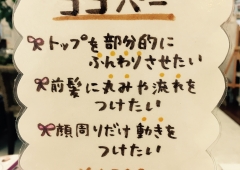 ココパー
トップを部分的に
ふんわりさせたい
前髪に丸みや流れを
つけたい
顔周りだけ動きを
つけたい